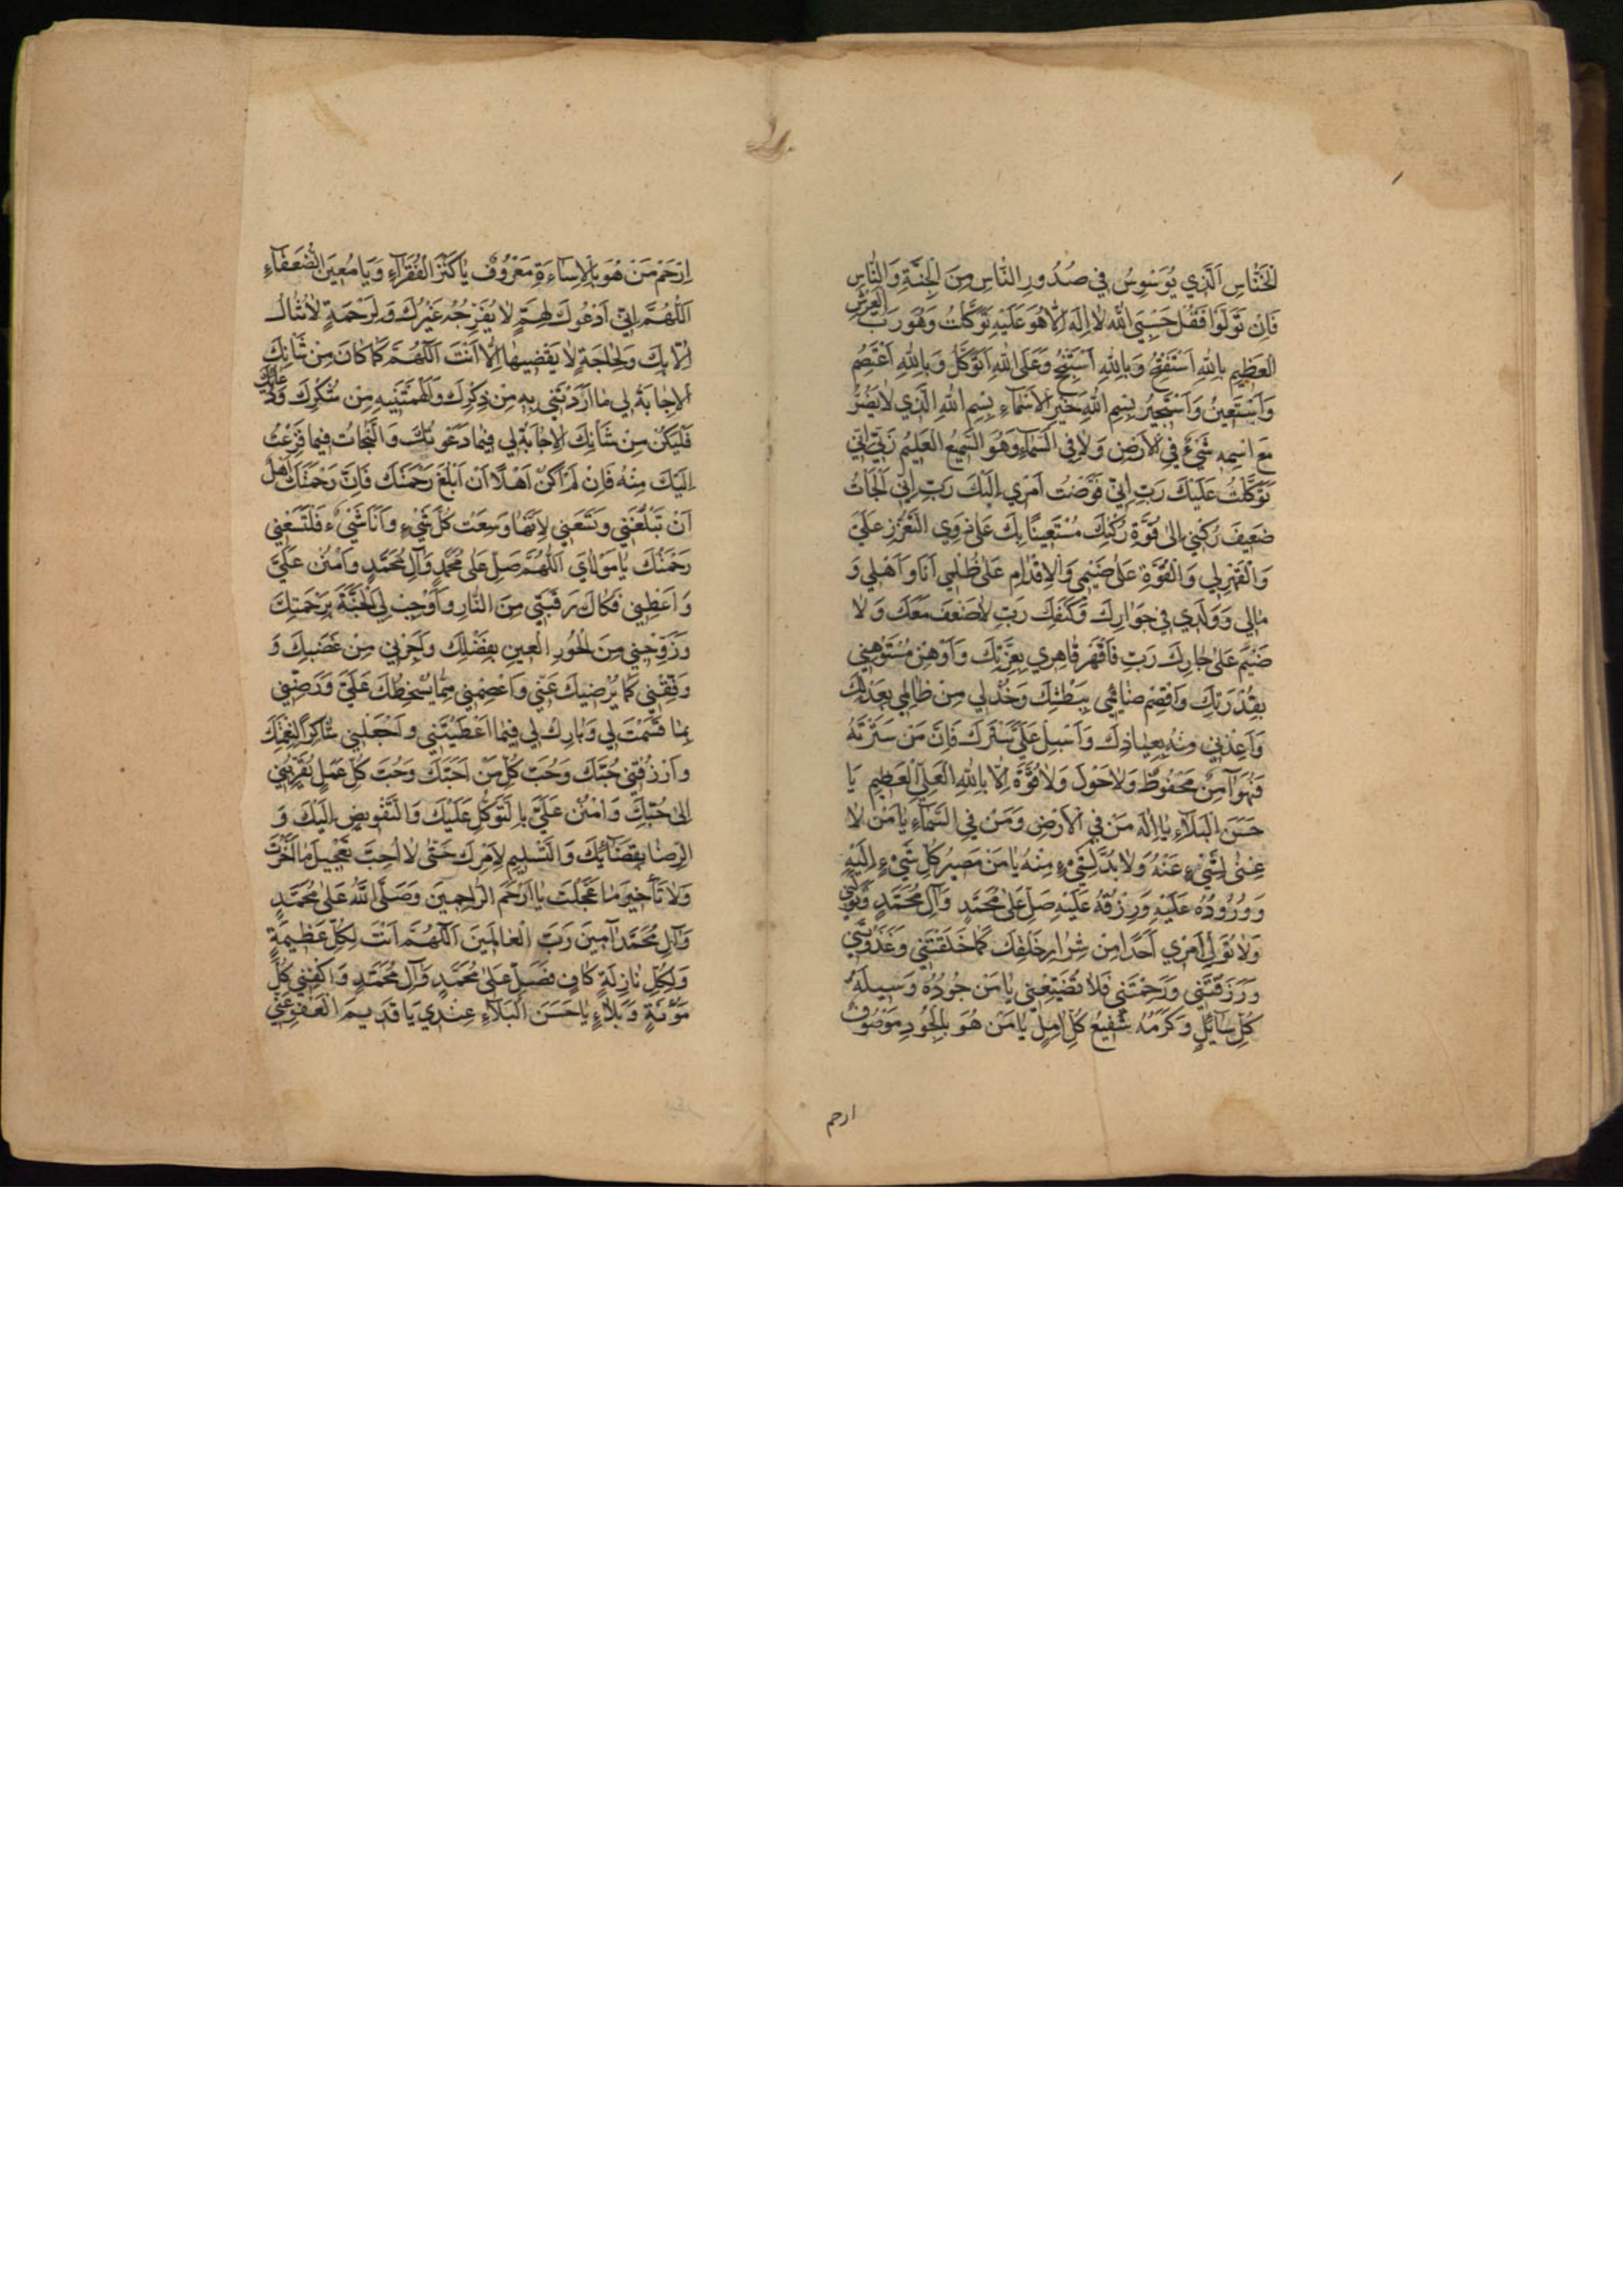 الْخَنّٰاسِ اَلَّذِي يُوَسْوِسُ فِي صُدُورِ النّٰاسِ مِنَ الْجِنَّةِ وَالنّٰاسِ
فَاِنْ تَوَلَّوْا فَقُلْ حَسْبِيَ اللّٰهُ لٰا اِلٰهَ اِلّٰا هُوَ عَلَيْهِ تَوَكَّلْتُ وَهُوَ رَبُّ الْعَرْشِ
الْعَظِيمِ بِاللّٰهِ اَسْتَفْتِحُ وَبِاللّٰهِ اَسْتَنْجِحُ وَعَلَى اللّٰهِ اَتَوَكَّلُ وَبِاللّٰهِ اَعْتَصِمُ
وَاَسْتَعِينُ وَاَسْتَجِيرُ بِسْمِ اللّٰهِ خَيْرِ الْاَسْمٰاءِ بِسْمِ اللّٰهِ الَّذِي لٰا يَضُرُّ
مَعَ اسْمِهِ شَيْءٌ فِي الْاَرْضِ وَلٰا فِي السَّمٰاءِ وَهُوَ السَّمِيعُ الْعَلِيمُ رَبِّ اِنِّي
تَوَكَّلْتُ عَلَيْكَ رَبِّ اِنِّي فَوَّضْتُ اَمْرِي اِلَيْكَ رَبِّ اِنِّي اَلْجَأْتُ
ضَعِيفَ رُكْنِي اِلىٰ قُوَّةِ رُكْنِكَ مُسْتَعِينًا بِكَ عَلىٰ ذَوِي التَّعَزُّزِ عَلَيَّ
وَالْقَهْرِ لِي وَالْقُوَّةِ عَلىٰ ضَيْمِي وَالْاِقْدٰامِ عَلىٰ ظُلْمِي اَنَا وَاَهْلِي وَ
مٰالِي وَوَلَدِي فِي جَوٰارِكَ وَكَنَفِكَ رَبِّ لٰا ضَعْفَ مَعَكَ وَلٰا
ضَيْمَ عَلىٰ جٰارِكَ رَبِّ فَاقْهَرْ قٰاهِرِي بِعِزَّتِكَ وَاَوْهِنْ مُسْتَوْهِنِي
بِقُدْرَتِكَ وَاقْصِمْ ضٰائِمِي بِبَطْشِكَ وَخُذْ لِي مِنْ ظٰالِمِي بِعَدْلِكَ
وَاَعِذْنِي مِنْهُ بِعِيٰاذِكَ وَاَسْبِلْ عَلَيَّ سَتْرَكَ فَاِنَّ مَنْ سَتَرْتَهُ
فَهُوَ آمِنٌ مَحْفُوظٌ وَلٰا حَوْلَ وَلٰا قُوَّةَ اِلّٰا بِاللّٰهِ الْعَلِيِّ الْعَظِيمِ يٰا
حَسَنَ الْبَلٰاءِ يٰا اِلٰهَ مَنْ فِي الْاَرْضِ وَمَنْ فِي السَّمٰاءِ يٰا مَنْ لٰا
غِنىٰ لِشَيْءٍ عَنْهُ وَلٰا بُدَّ لِشَيْءٍ مِنْهُ يٰا مَنْ مَصِيرُ كُلِّ شَيْءٍ اِلَيْهِ
وَوُرُودُهُ عَلَيْهِ وَرِزْقُهُ عَلَيْهِ صَلِّ عَلىٰ مُحَمَّدٍ وَآلِ مُحَمَّدٍ وَتَوَلَّنِي
وَلٰا تُوَلِّ اَمْرِي اَحَدًا مِنْ شِرٰارِ خَلْقِكَ كَمٰا خَلَقْتَنِي وَغَذَوْتَنِي
وَرَزَقْتَنِي وَرَحِمْتَنِي فَلٰا تُضَيِّعْنِي يٰا مَنْ جُودُهُ وَسِيلَةُ
كُلِّ سٰائِلٍ وَكَرَمُهُ شَفِيعُ كُلِّ اٰمِلٍ يٰا مَنْ هُوَ بِالْجُودِ مَوْصُوفٌ
ارحم
اِرْحَمْ مَنْ هُوَ بِالْاِسٰاءَةِ مَعْرُوفٌ يٰا كَنْزَ الْفُقَرٰاءِ وَيٰا مُعِينَ الضُّعَفٰاءِ
اَللّٰهُمَّ اِنِّي اَدْعُوكَ لِهَمٍّ لٰا يُفَرِّجُهُ غَيْرُكَ وَلِرَحْمَةٍ لٰا تُنٰالُ
اِلّٰا بِكَ وَلِحٰاجَةٍ لٰا يَقْضِيهٰا اِلّٰا اَنْتَ اَللّٰهُمَّ كَمٰا كٰانَ مِنْ شَأْنِكَ
الْاِجٰابَةُ لِي مٰا اَرَدْتَنِي بِهِ مِنْ ذِكْرِكَ وَاَلْهَمْتَنِيهِ مِنْ شُكْرِكَ وَدُعٰائِكَ
فَلْيَكُنْ مِنْ شَأْنِكَ الْاِجٰابَةُ لِي فِيمٰا دَعَوْتُكَ وَالنَّجٰاةُ فِيمٰا فَزِعْتُ
اِلَيْكَ مِنْهُ فَاِنْ لَمْ اَكُنْ اَهْلًا اَنْ اَبْلُغَ رَحْمَتَكَ فَاِنَّ رَحْمَتَكَ اَهْلٌ
اَنْ تَبْلُغَنِي وَتَسَعَنِي لِاَنَّهٰا وَسِعَتْ كُلَّ شَيْءٍ وَاَنَا شَيْءٌ فَلْتَسَعْنِي
رَحْمَتُكَ يٰا مَوْلٰايَ اَللّٰهُمَّ صَلِّ عَلىٰ مُحَمَّدٍ وَآلِ مُحَمَّدٍ وَامْنُنْ عَلَيَّ
وَاَعْطِنِي فَكٰاكَ رَقَبَتِي مِنَ النّٰارِ وَاَوْجِبْ لِيَ الْجَنَّةَ بِرَحْمَتِكَ
وَزَوِّجْنِي مِنَ الْحُورِ الْعِينِ بِفَضْلِكَ وَاَجِرْنِي مِنْ غَضَبِكَ وَ
وَفِّقْنِي لِمٰا يُرْضِيكَ عَنِّي وَاعْصِمْنِي مِمّٰا يُسْخِطُكَ عَلَيَّ وَرَضِّنِي
بِمٰا قَسَمْتَ لِي وَبٰارِكْ لِي فِيمٰا اَعْطَيْتَنِي وَاجْعَلْنِي شٰاكِرًا لِنِعْمَتِكَ
وَارْزُقْنِي حُبَّكَ وَحُبَّ كُلِّ مَنْ اَحَبَّكَ وَحُبَّ كُلِّ عَمَلٍ يُقَرِّبُنِي
اِلىٰ حُبِّكَ وَامْنُنْ عَلَيَّ بِالتَّوَكُّلِ عَلَيْكَ وَالتَّفْوِيضِ اِلَيْكَ وَ
الرِّضٰا بِقَضٰائِكَ وَالتَّسْلِيمِ لِاَمْرِكَ حَتّٰى لٰا اُحِبَّ تَعْجِيلَ مٰا اَخَّرْتَ
وَلٰا تَأْخِيرَ مٰا عَجَّلْتَ يٰا اَرْحَمَ الرّٰاحِمِينَ وَصَلَّى اللّٰهُ عَلىٰ مُحَمَّدٍ
وَآلِ مُحَمَّدٍ آمِينَ رَبَّ الْعٰالَمِينَ اَللّٰهُمَّ اَنْتَ لِكُلِّ عَظِيمَةٍ
وَلِكُلِّ نٰازِلَةٍ كٰافٍ فَصَلِّ عَلىٰ مُحَمَّدٍ وَآلِ مُحَمَّدٍ وَاكْفِنِي كُلَّ
مَؤُنَةٍ وَبَلٰاءٍ يٰا حَسَنَ الْبَلٰاءِ عِنْدِي يٰا قَدِيمَ الْعَفْوِ عَنِّي